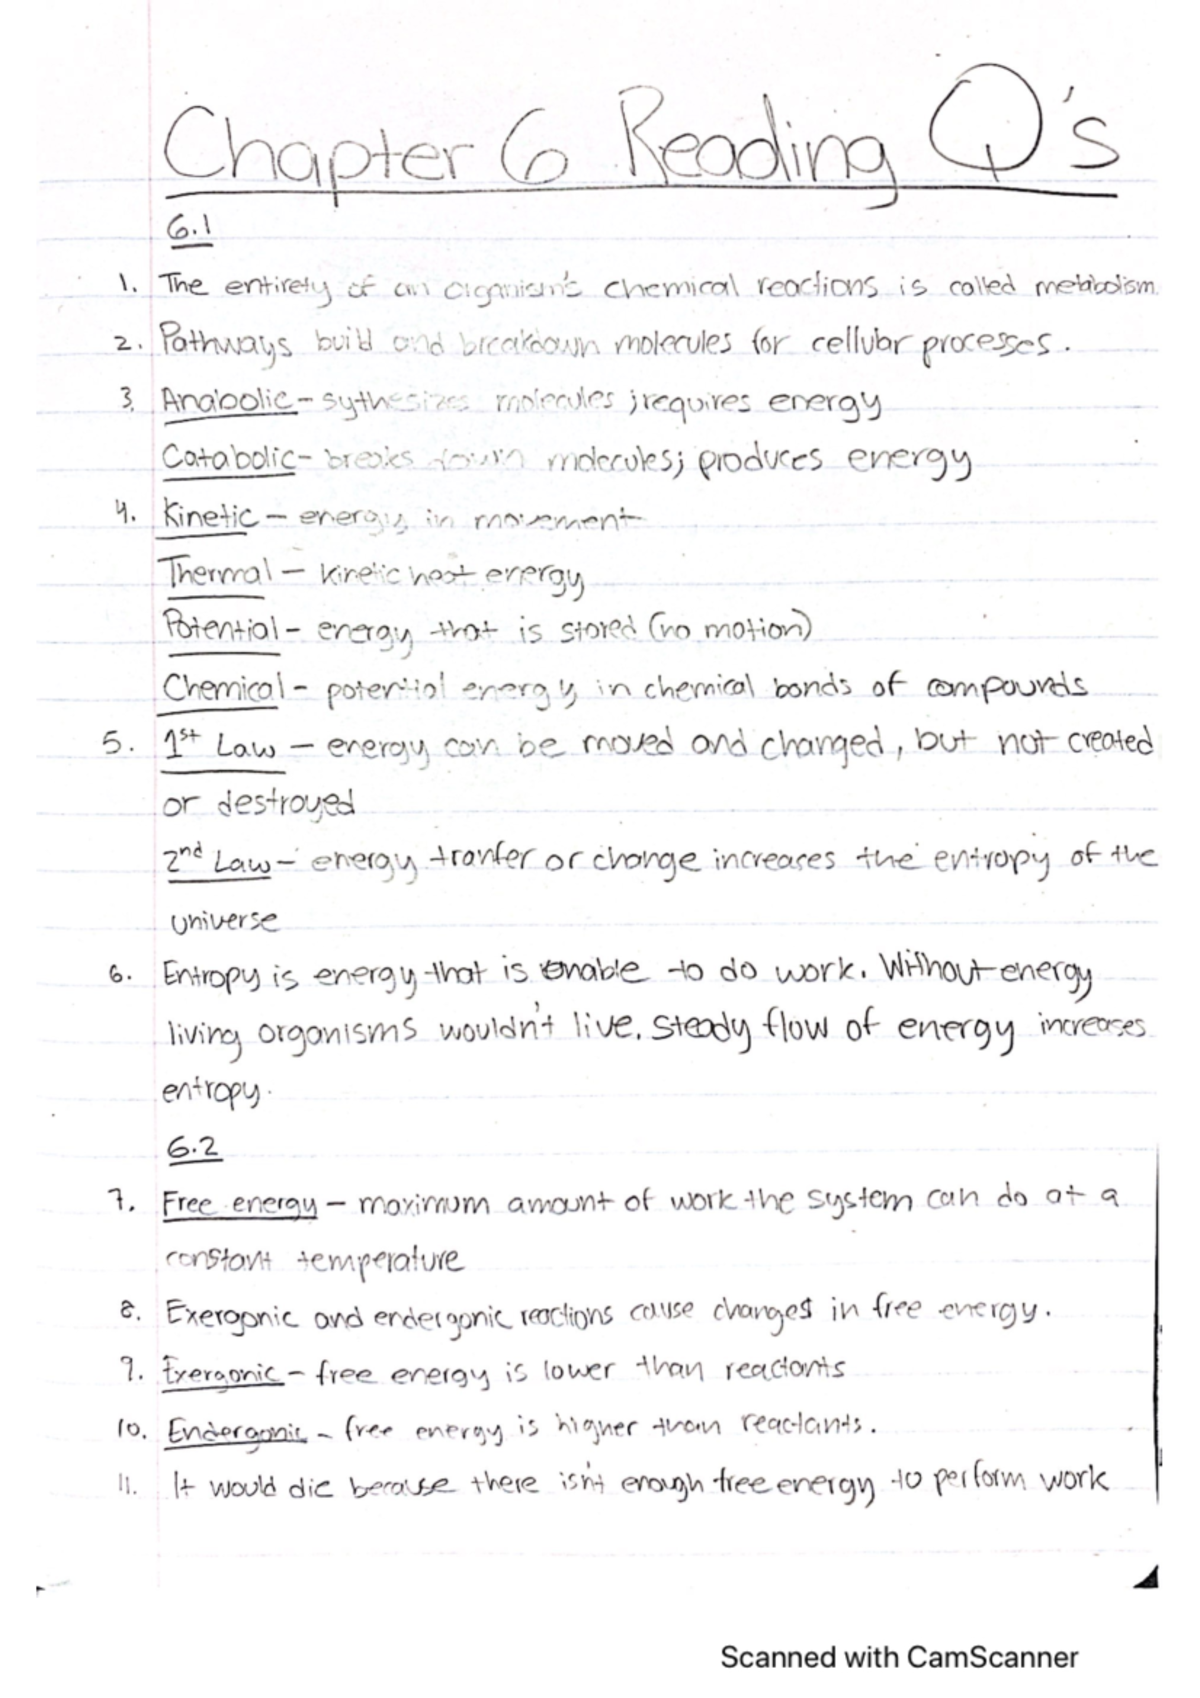 Chapter 6 Reading Q's
6.1
1. The entirety of an organism's chemical reactions is called metabolism.
2. Pathways build and breakdown molecules for cellular processes.
3. Anabolic - sythesizes molecules ; requires energy
Catabolic - breaks down molecules; produces energy
4. Kinetic - energy in movement
Thermal - kinetic heat energy
Potential - energy that is stored (no motion)
Chemical - potential energy in chemical bonds of compounds
5. 1st Law - energy can be moved and changed, but not created
or destroyed
2nd Law - energy tranfer or change increases the entropy of the
universe
6. Entropy is energy that is enable to do work. Without energy
living organisms wouldn't live. Steady flow of energy increases
entropy.
6.2
7. Free energy - maximum amount of work the system can do at a
constant temperature
8. Exergonic and endergonic reactions cause changes in free energy.
9. Exergonic - free energy is lower than reactants
10. Endergonic - free energy is higher than reactants.
11. It would die because there isn't enough free energy to perform work
Scanned with CamScanner